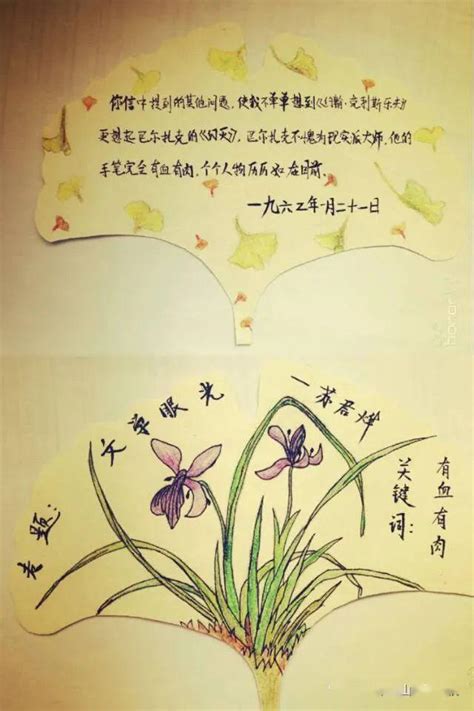 你信中提到的其他问题，使我不单单想到《约翰·克利斯朵夫》
更想起巴尔扎克的《幻灭》，巴尔扎克不愧为现实派大师，他的
手笔完全有血有肉，个个人物历历如在目前.
一九六三年一月二十一日
honor
专题：文学眼光
—苏君烨
关键词：
有血有肉
山